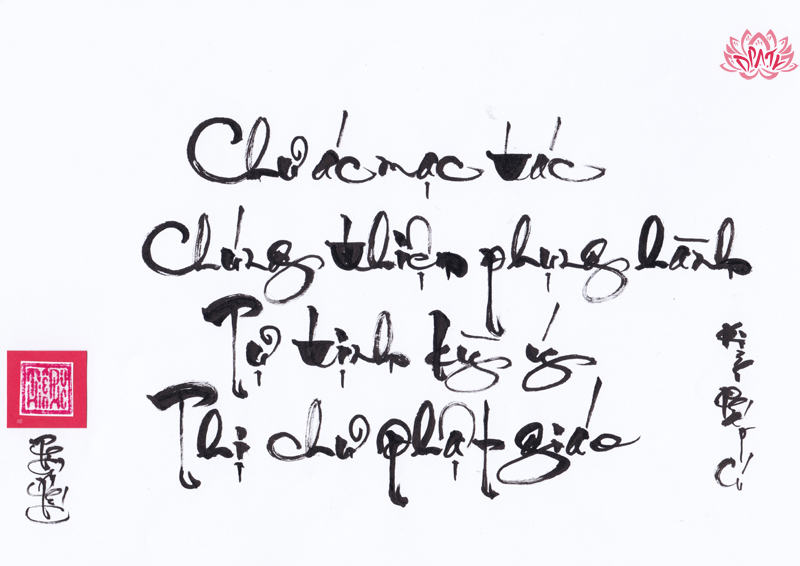 Chư ác mạc tác
Chúng thiện phụng hành
Tự tịnh kỳ ý
Thị chư phật giáo
Kinh Pháp Cú